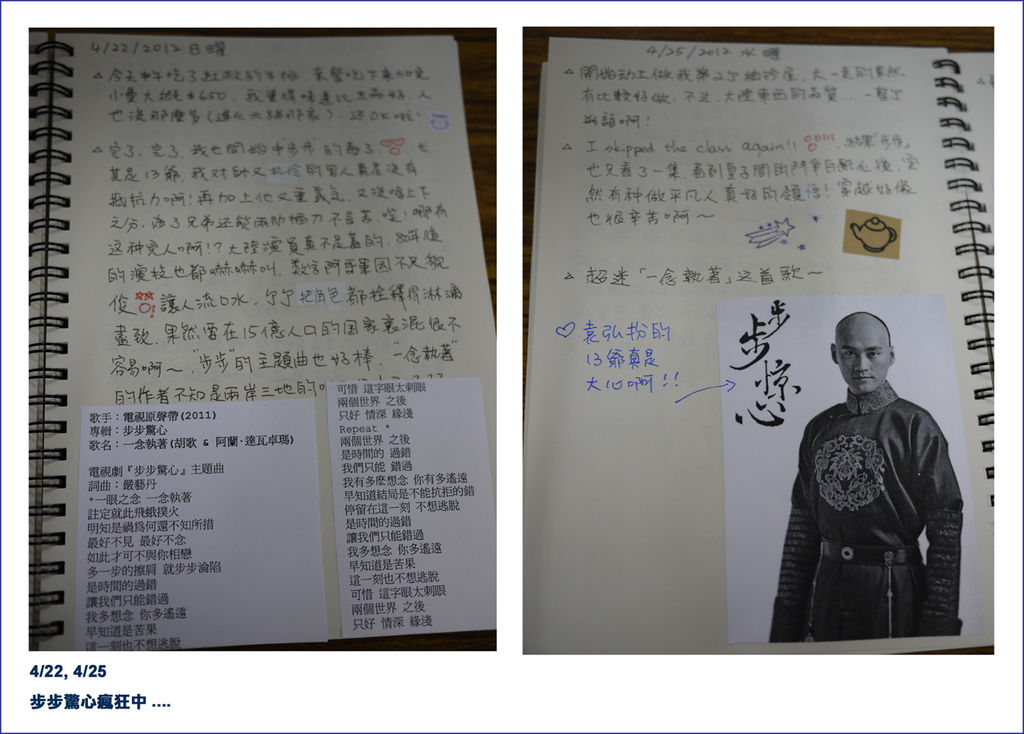 4/22/2012 日曜
△ 今天中午吃了紅敵的牛排，套餐吃下來如兔
小費大概$650，我覺得味道比王品好，人
也沒那麼多(進化北路那家)，還OK啦！
△ 完了，完了，我也開始中"步步"的毒了
其是13爺，我對帥又
抵抗力啊！再加上他又重義氣，又沒啥上下
之分，為了兄弟還能兩肋插刀不言苦，哎！哪有
这种完人啊！？大陸演員真不是蓋的，80年後
的演技也都嚇嚇叫，數字阿哥軍團不只貌
俊 讓人流口水，ㄎㄎ把角色都詮釋得淋漓
盡致，果然要在15億人口的国家裏混很不
容易啊～"步步"的主題曲也好棒，"一念執著"
的作者不知是兩岸三地的
歌手：電視原聲帶(2011)
專輯：步步驚心
歌名：一念執著(胡歌 & 阿蘭·達瓦卓瑪)
電視劇『步步驚心』主題曲
詞曲：嚴藝丹
*一眼之念 一念執著
註定就此飛蛾撲火
明知是禍為何還不知所措
最好不見 最好不念
如此才可不與你相戀
多一步的擦肩 就步步淪陷
是時間的過錯
讓我們只能錯過
我多想念 你多遙遠
早知道是苦果
這一刻也不想逃脫
可惜 這字眼太刺眼
兩個世界 之後
只好 情深 緣淺
Repeat *
兩個世界 之後
是時間的 過錯
我們只能 錯過
我有多麼想念 你有多遙遠
早知道結局是不能抗拒的錯
停留在這一刻 不想逃脫
是時間的過錯
讓我們只能錯過
我多想念 你多遙遠
早知道是苦果
這一刻也不想逃脫
可惜 這字眼太刺眼
兩個世界 之後
只好 情深 緣淺
4/25/2012 水曜
△ 開始动工做我第2了袖珍屋，大一莫則果然
有比較好做，不过，大陸東西的品質.....一整了
無語啊！
△ I skipped the class again!! 結果"步步"
也只看了一集，看到皇子間的鬥爭白熱化後，突
然有种做平凡人真好的領悟！穿越好像
也很辛苦啊～
△ 超迷「一念執著」这首歌～
♡ 袁弘扮的
13爺真是
大心啊!!
步步惊心
4/22, 4/25
步步驚心瘋狂中 ....